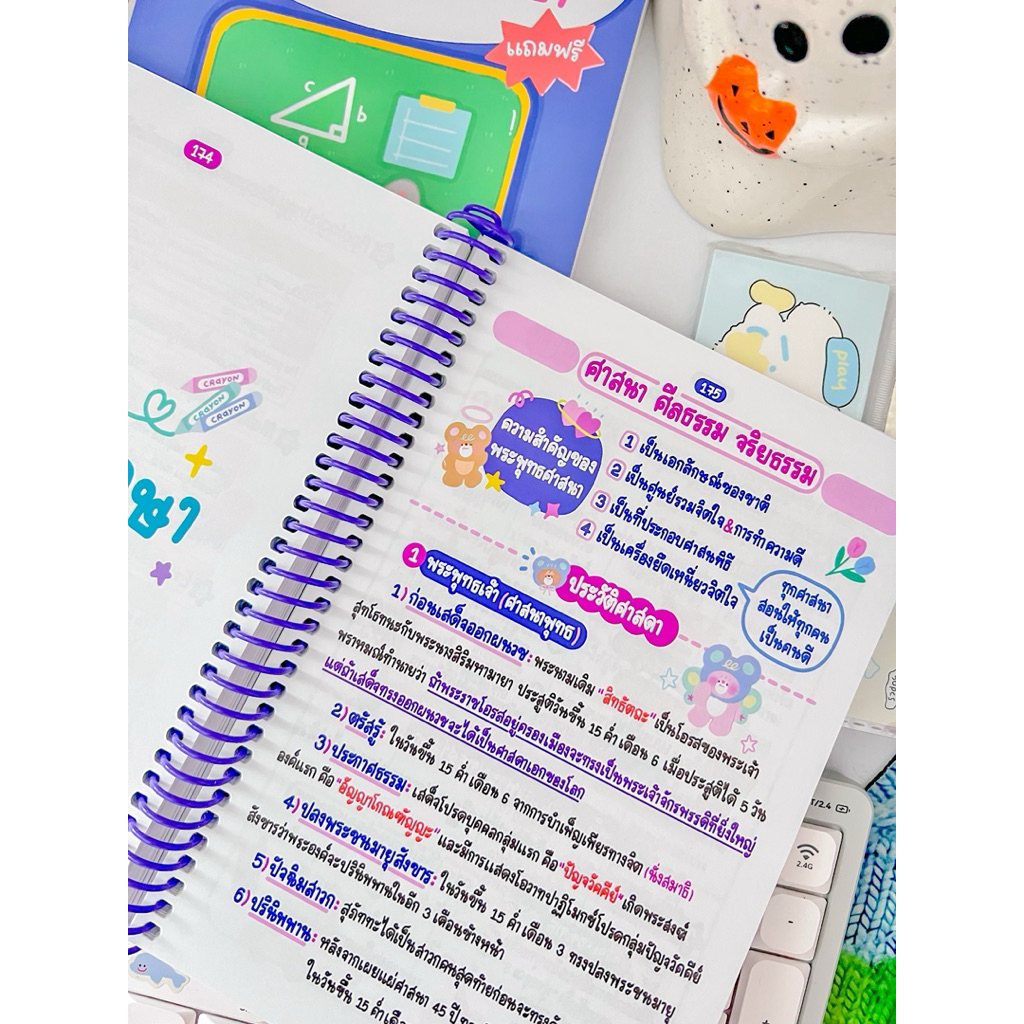 แถมฟรี
c
b
a
174
CRAYON
CRAYON
CRAYON
play
175
ศาสนา ศีลธรรม จริยธรรม
ความสำคัญของ
พระพุทธศาสนา
1 เป็นเอกลักษณ์ของชาติ
2 เป็นศูนย์รวมจิตใจ&การทำความดี
3 เป็นที่ประกอบศาสนพิธี
4 เป็นเครื่องยึดเหนี่ยวจิตใจ
ทุกศาสนา
สอนให้ทุกคน
เป็นคนดี
ประวัติศาสดา
1 พระพุทธเจ้า (ศาสนาพุทธ)
1) ก่อนเสด็จออกผนวช: พระนามเดิม "สิทธัตถะ" เป็นโอรสของพระเจ้า
สุทโธทนะกับพระนางสิริมหามายา ประสูติวันขึ้น 15 ค่ำ เดือน 6 เมื่อประสูติได้ 5 วัน
พราหมณ์ทำนายว่า ถ้าพระราชโอรสอยู่ครองเมืองจะทรงเป็นพระเจ้าจักรพรรดิที่ยิ่งใหญ่
แต่ถ้าเสด็จทรงออกผนวชจะได้เป็นศาสดาเอกของโลก
2) ตรัสรู้: ในวันขึ้น 15 ค่ำ เดือน 6 จากการบำเพ็ญเพียรทางจิต (นั่งสมาธิ)
3) ประกาศธรรม: เสด็จโปรดบุคคลกลุ่มแรก คือ "ปัญจวัคคีย์" เกิดพระสงฆ์
องค์แรก คือ "อัญญาโกณฑัญญะ" และมีการแสดงโอวาทปาฏิโมกข์โปรดกลุ่มปัญจวัคคีย์
4) ปลงพระชนมายุสังขาร: ในวันขึ้น 15 ค่ำ เดือน 3 ทรงปลงพระชนมายุ
สังขารว่าพระองค์จะปรินิพพานในอีก 3 เดือนข้างหน้า
5) ปัจฉิมสาวก: สุภัททะได้เป็นสาวกคนสุดท้ายก่อนจะทรง
6) ปรินิพพาน: หลังจากเผยแผ่ศาสนา 45 ปี
ในวันขึ้น 15 ค่ำ
T/2.4
2.4G
-
+